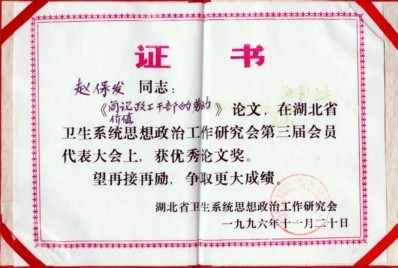 证书
赵保发 同志：
《简论政工干部的劳动价值》论文，在湖北省
卫生系统思想政治工作研究会第三届会员
代表大会上，获优秀论文奖。
望再接再励，争取更大成绩
湖北省卫生系统思想政治工作研究会
一九九六年十一月二十日